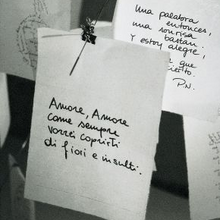 Una palabra
entonces,
una sonrisa
bastan.
Y estoy alegre,
que
cierto
P.N.
Amore, Amore
come sempre
vorrei coprirti
di fiori e insulti.